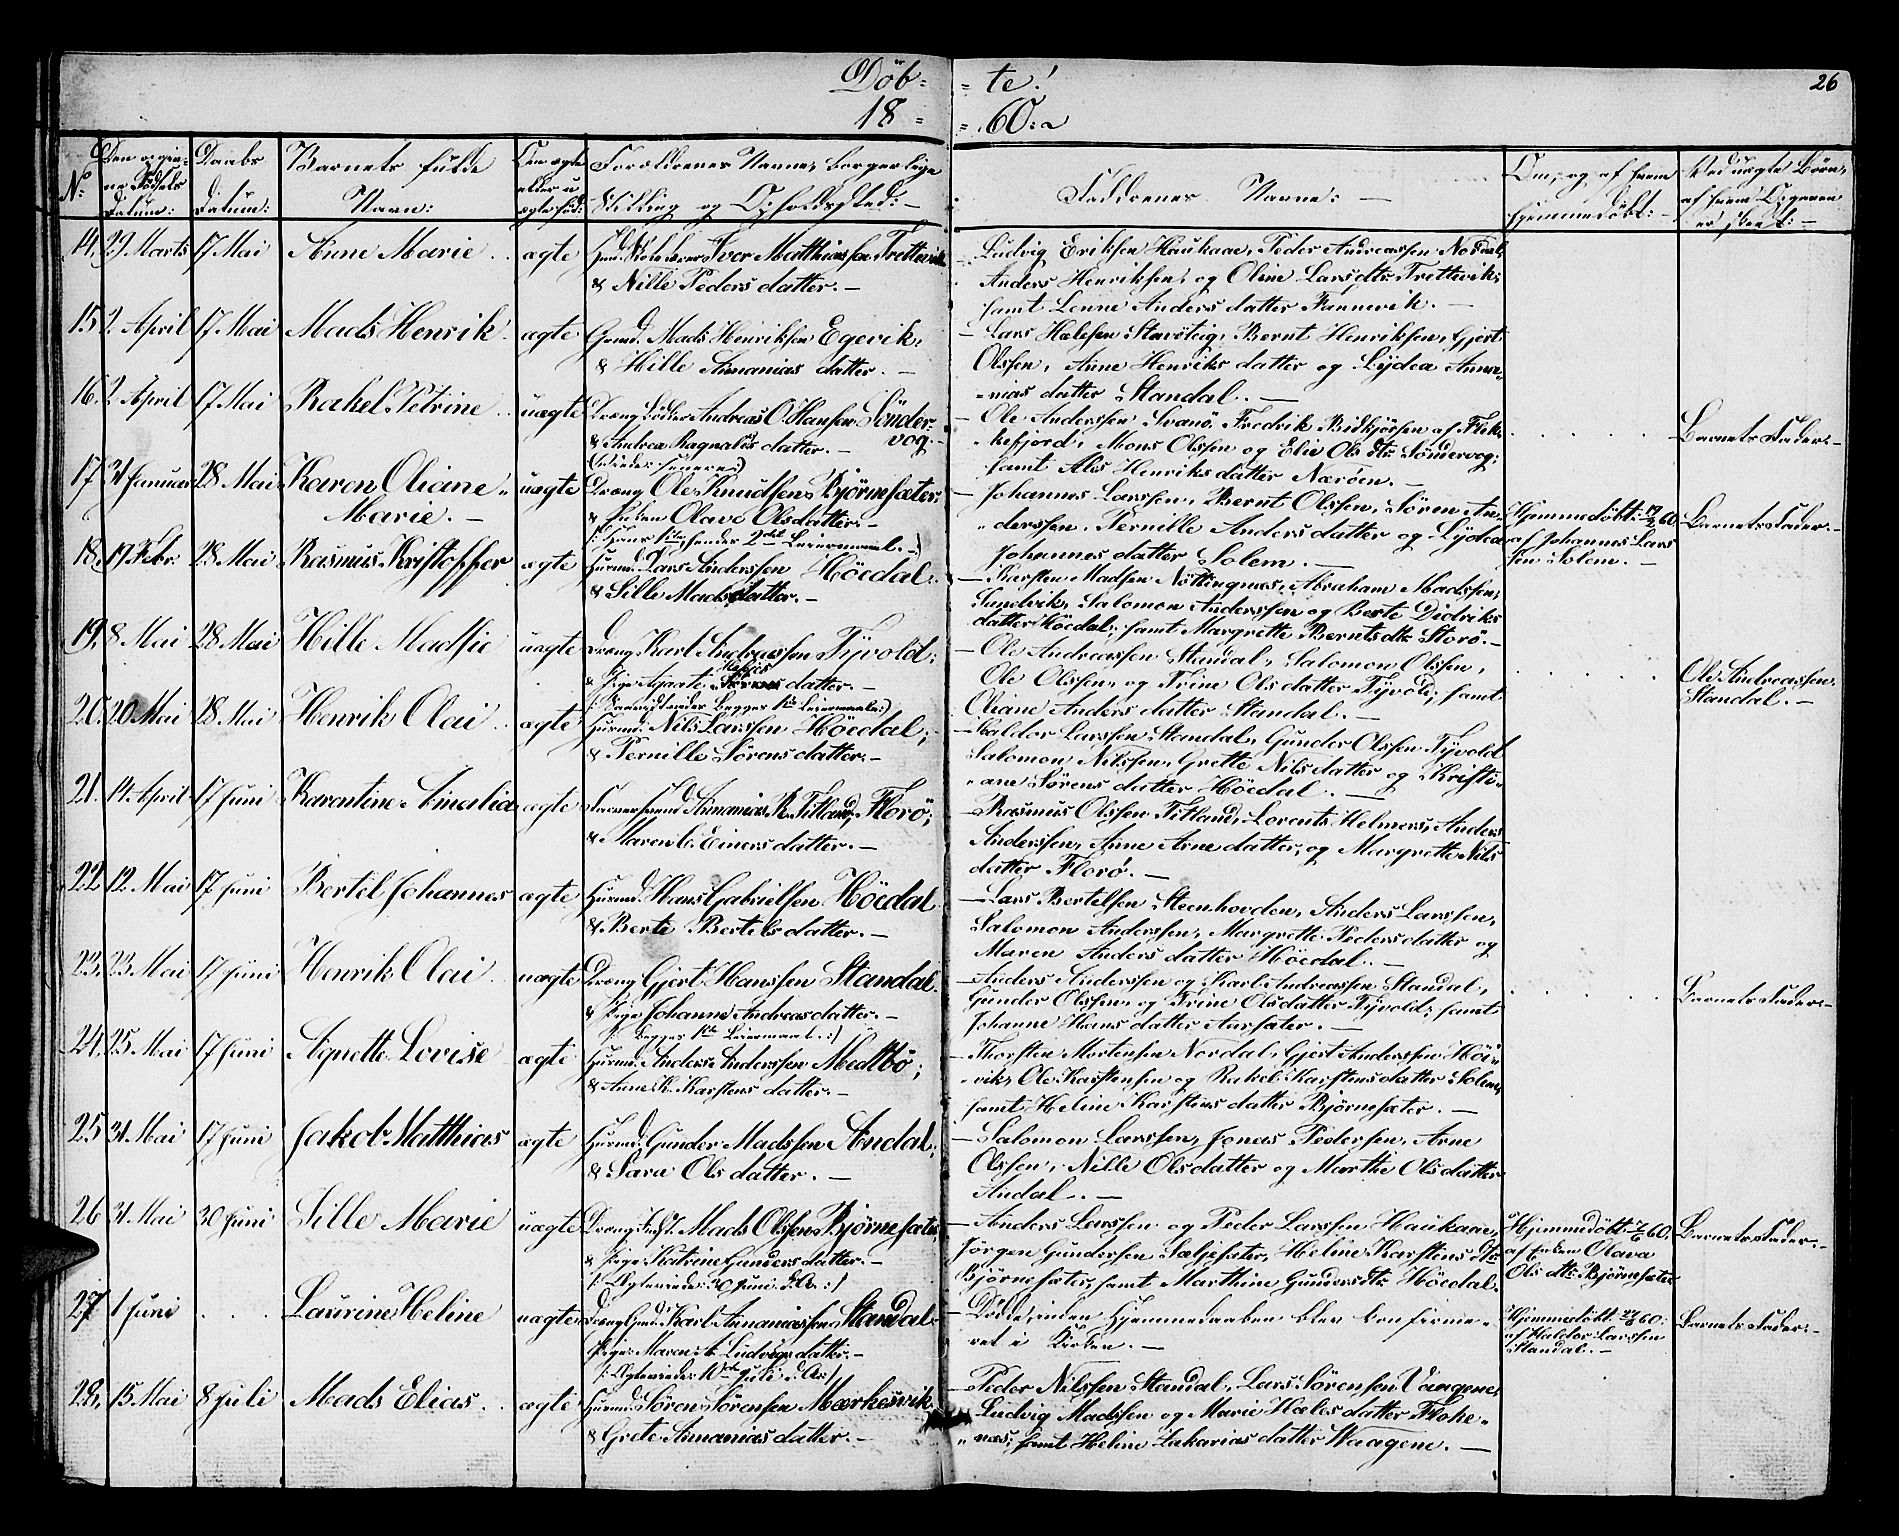 Döb= =te!
26
18= =60:
No:
Den opgiv=
ne Fødsels
Datum:
Daabs
Datum:
Barnets fulde
Navn:
Om ægte
eller u
ægte fød:
Forældrenes Navne, borgerlige
Stilling og Opholdssted:
Faddrenes Navne:
Om, og af hvem
hjemmedöbt:
Ved uægte Börn,
af hvem Opgaven
er skeet:
14, 29 Marts 17 Mai Anne Marie ægte Iver Matthiassen Trettevik
& Nille Peders datter.
Ludvig Eriksen Haukaae, Peder Andreassen Nordal,
Anders Henriksen, og Oline Larsdtr Trettevik;
samt Lenne Anders datter Fannevik.
15 2 April 17 Mai Mads Henrik ægte Gmd. Mads Henriksen Egevik,
& Hille Ananias datter.
Lars Helesen Stavöteig, Bernt Henriksen, Gjert
Olssen, Anne Henriks datter og Lydea Anna=
=nias datter Standal.
16. 2 April 17 Mai Rakel Petrine uægte Dreng Andreas O. Hansen Sönder=
vog.
& Andrea Ragnalds datter.
Ole Anderssen Svanö, Fredrik Bidkjörsen af Flek=
kefjord, Mons Olssen og Elie Ols dtr Söndervog;
samt Ales Henriks datter Næröen.
Barnets Fader:
17 31 Januar 28 Mai Karen Oliane
Marie.
uægte Dreng Ole Knudsen Björnesæter
& Enken Olave Olsdatter:
Johannes Larssen, Bernt Olssen, Sören An=
derssen, Pernille Anders datter og Lydea
Johannes datter Solem.
Hjemmedöbt: 19/2 60.
af Johannes Lars
sen Solem.
Barnets Fader.
18, 19 Febr. 28 Mai Rasmus Kristoffer ægte Huusmd. Lars Anderssen Höedal.
& Sille Mads datter.
Karsten Madsen Nöttingnæs, Abraham Madssen,
Sundvik, Salomon Anderssen og Berte Didriks
datter Höedal; samt Margrette Bernts dtr Storö.
19, 8 Mai 28 Mai Hille Madsie uægte Dreng Karl Andreassen Tyvold;
& Pige Agnete Heljes datter.
Ole Andreassen Standal, Salomon Olssen,
Ole Olssen, og Trine Ols datter Tyvold; samt
Oliane Anders datter Standal.
Ole Andreassen
Standal.
20. 20 Mai 28 Mai Henrik Olai ægte Huusmd. Nils Larssen Höedal;
& Pernille Sörens datter.
Halder Larssen Standal, Gunder Olssen Tyvold
Salomon Nilssen, Grette Nils datter og Kristi=
=ane Sörens datter Höedal.
21. 14 April 17 Juni Karentine Amalia ægte Ananias R. Titland, Florö;
& Maren C. Einers datter.
Rasmus Olssen Titland, Lorents Helmers, Anders
Anderssen, Anne Arne datter, og Margrette Nils
datter Florø.
22 12. Mai 17 Juni Bertel Johannes ægte Huusmd. Hans Gabrielsen Höedal
& Berte Bertels datter.
Lars Bertelsen Steenhovden, Anders Larssen,
Salomon Anderssen, Margrette Peders datter og
Maren Anders datter Höedal.
23. 23. Mai 17 Juni Henrik Olai uægte Dreng Gjert Hanssen Standal
& Pige Johanne Andreas datter.
(: Begges 1ste Leiermaal :)
Anders Anderssen og Karl Andreassen Standal,
Gunder Olssen, og Trine Olsdatter Tyvold, samt
Johanne Hans datter Aarsæter.
Barnets Fader:
24, 25 Mai 17 Juni Agnette Lovise ægte Huusmd. Anders Anderssen Medtbö;
& Anne K. Karstens datter.
Thorsten Mortensen Nordal, Gjert Anderssen Höi=
vik, Ole Karstensen og Rakel Karstens datter Solem,
samt Heline Karstens datter Björnesæter.
25 31 Mai 17 Juni Jakob Matthias ægte Huusmd. Gunder Madssen Andal;
& Sara Ols datter.
Salomon Larssen, Jonas Pedersen, Arne
Olssen, Nille Olsdatter og Marthe Ols datter
Andal.
26 31 Mai 30 Juni Sille Marie uægte Dreng Mads Olssen Björnesæter,
& Pige Katrine Gunders datter.
(: Ægteviede: 30 Juni d.A. :)
Anders Larssen og Peder Larssen Haukaae,
Jörgen Gundersen Sæljesæter, Heline Karstens dtr
Björnesæter, samt Marthine Gunders dtr Höedal.
Hjemmedöbt 7/6 60.
af Enken Olava
Ols dtr Björnesæter
Barnets Fader:
27 1 Juni Laurine Heline uægte Dreng Karl Ananiassen Standal
Pige Maren A. Ludvigs datter.
(: Ægteviede: 10de Juli d.A. :)
Döde, inden Hjemmedaaben blev konfirme=
ret i Kirken.
Hjemmedöbt 60:
af Haldor Larssen
Standal.
Barnets Fader:
28, 15 Mai 8 Juli Mads Elias. ægte Huusmd. Sören Sörensen Mærkesvik
& Grete Ananias datter.
Peder Nilssen Standal, Lars Sörensen Vaagene,
Ludvig Madssen og Marie Heles datter Flohe=
=næs; samt Heline Zakarias datter Waagene.